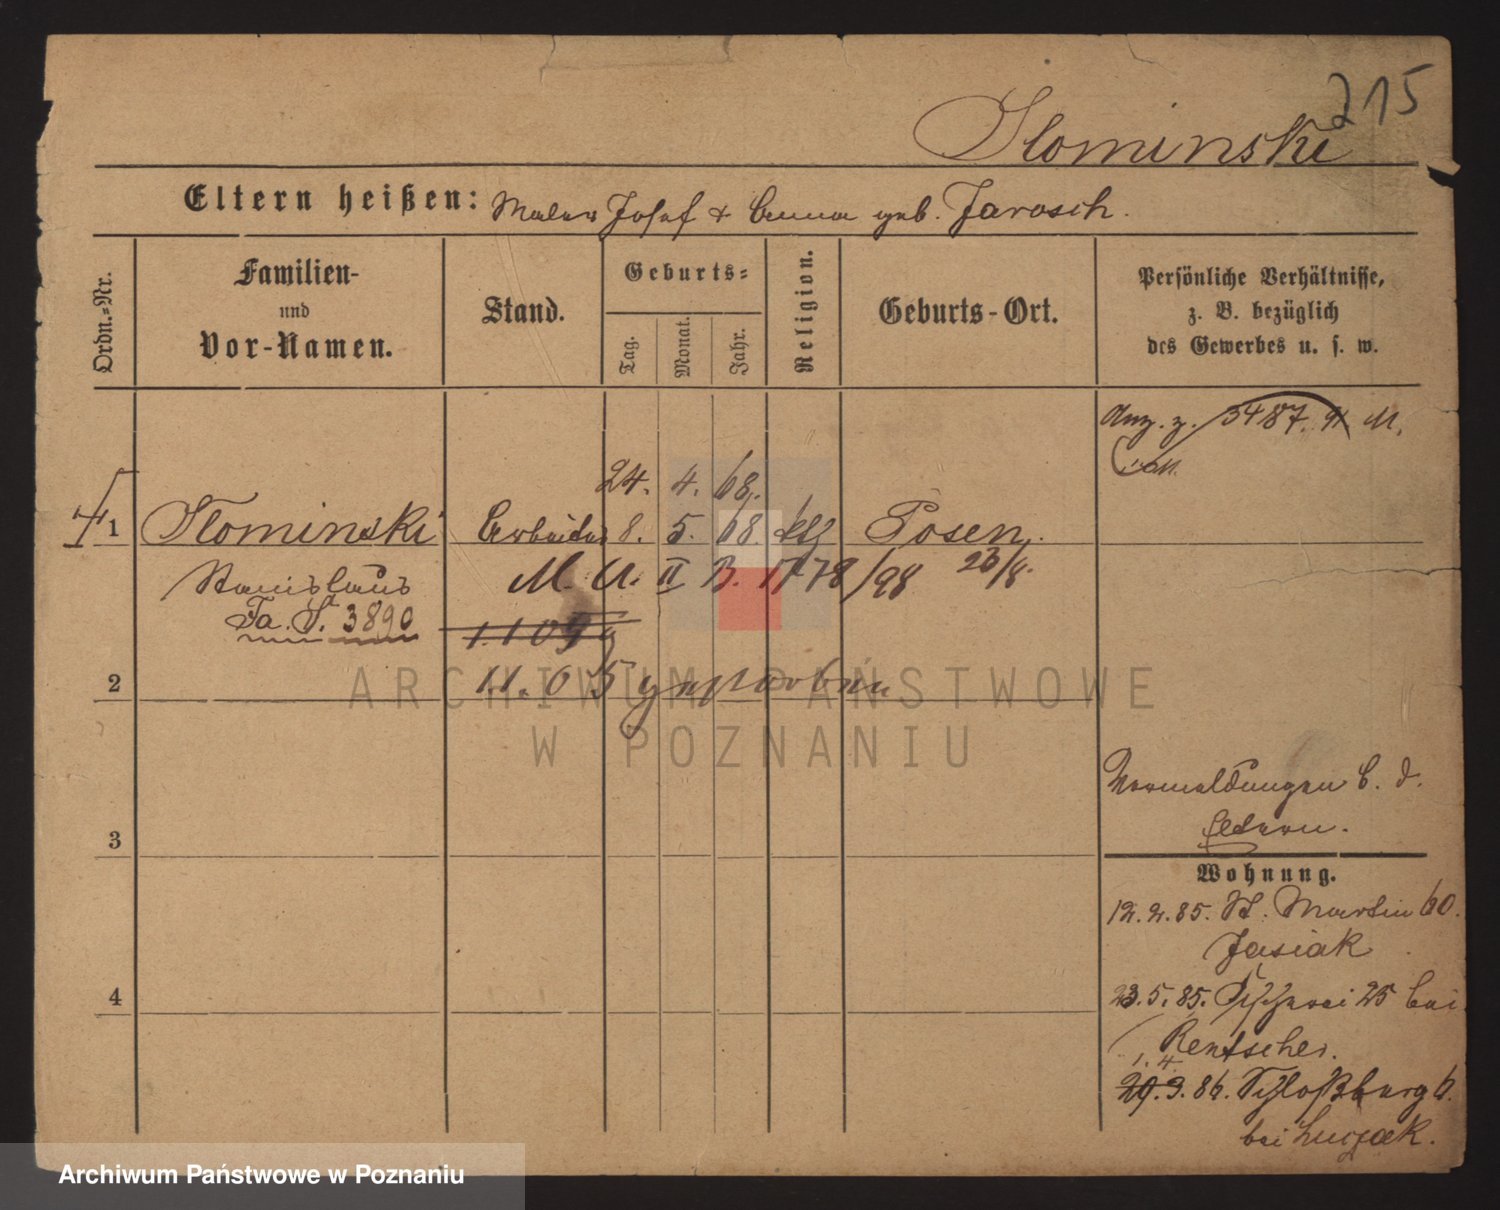 215
Slominski
Eltern heißen: Maler Josef & Anna geb. Jarosch.
Ordn.-Nr.
Familien-
und
Vor-Namen.
Stand.
Geburts-
Tag.
Monat.
Jahr.
Religion.
Geburts-Ort.
Persönliche Verhältnisse,
z. B. bezüglich
des Gewerbes u. s. w.
Anz. z. 3487. 91 M.
24. 4. 68.
1 Slominski Arbeiter 8. 5. 68. kth Posen.
Stanislaus M. U. II B. 1778/98 23/8.
Fa. S. 3890
1.1 09
2 1.1.05 gestorben
ARCHIWUM PAŃSTWOWE
W POZNANIU
Vermeldungen b. d.
Eltern.
3
Wohnung.
12.2.85. St. Martin 60.
Jasiak
4
23.5.85. Fischerei 25 bei
Rentscher.
1. 4.
29.3.86. Schloßberg 6.
bei
Archiwum Państwowe w Poznaniu